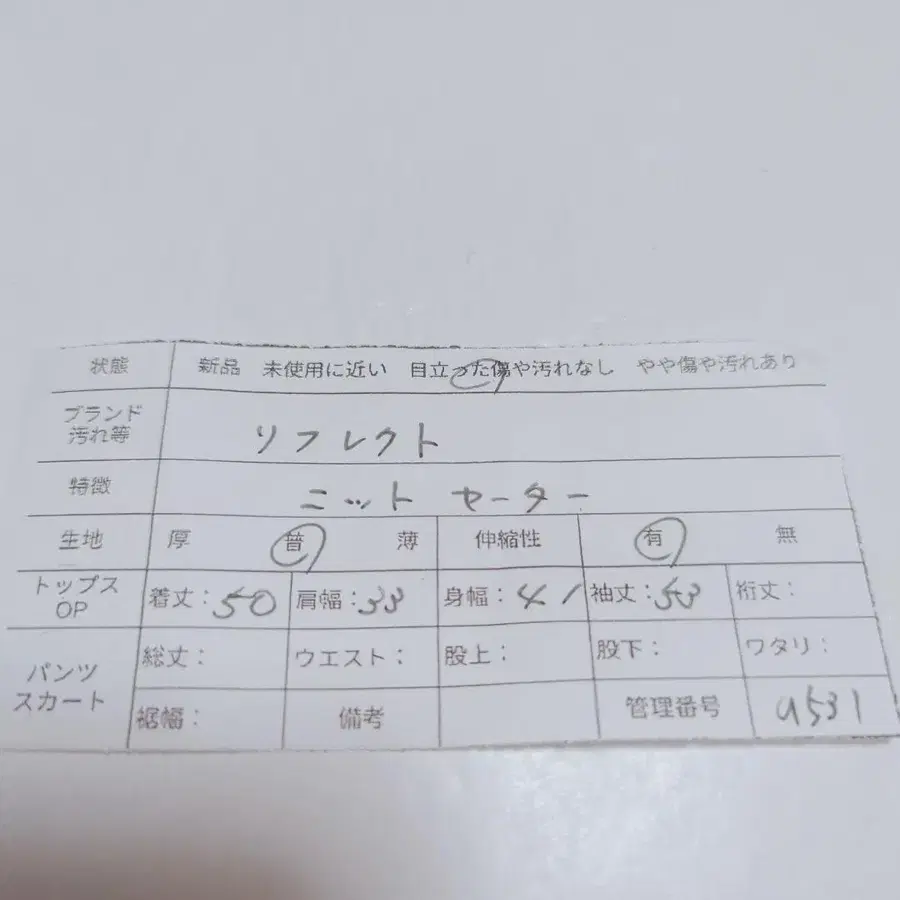 状態 新品 未使用に近い 目立った傷や汚れなし やや傷や汚れあり
ブランド
汚れ等 リフレクト
特徴 ニット セーター
生地 厚 普 薄 伸縮性 有 無
トップス
OP 着丈:50 肩幅:33 身幅:41 袖丈:53 裄丈:
パンツ
スカート 総丈: ウエスト: 股上: 股下: ワタリ:
裾幅: 備考 管理番号 a531